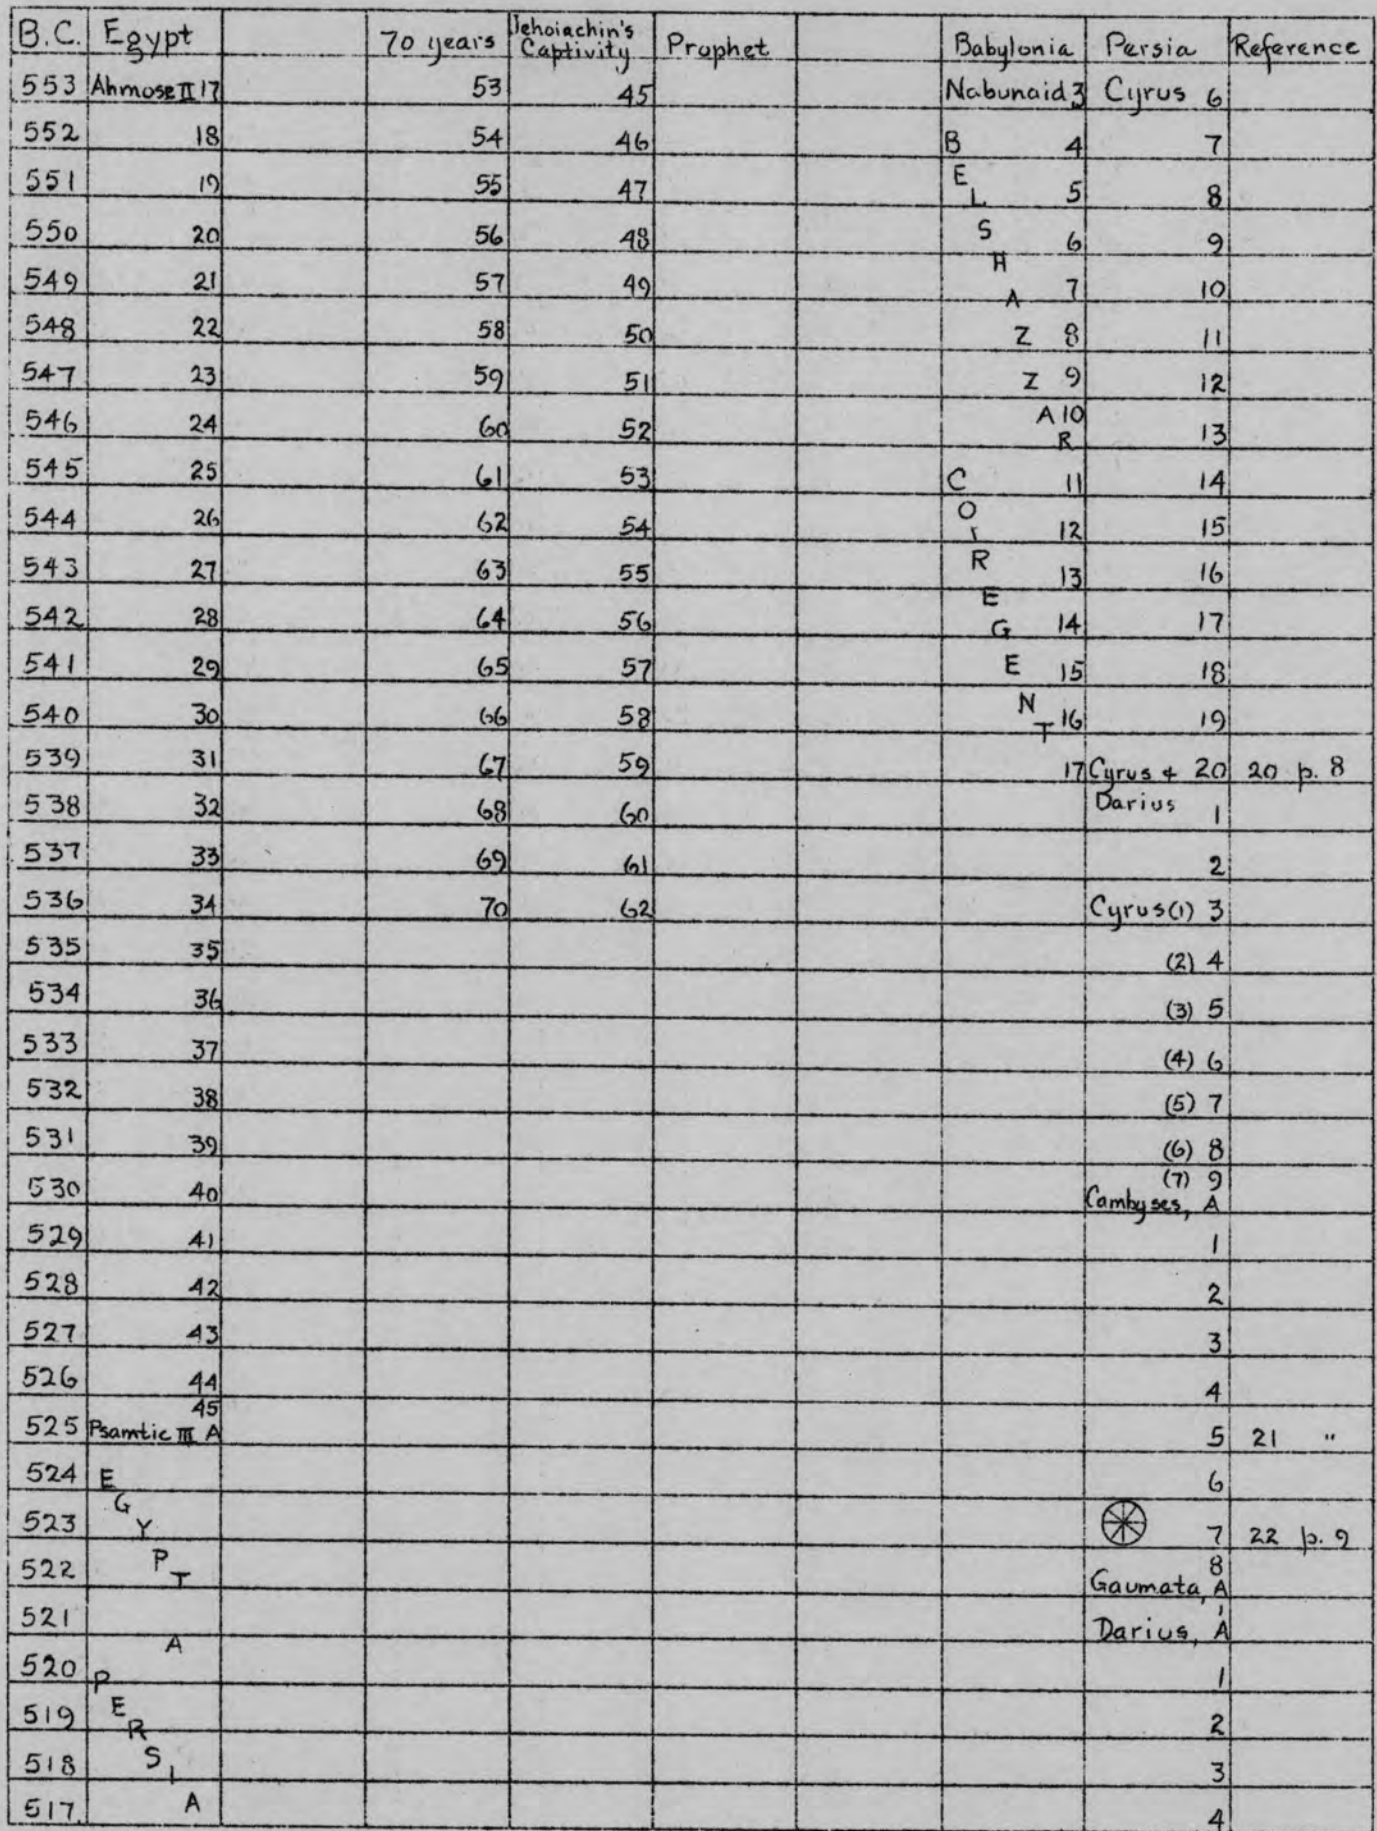 B.C. Egypt 70 years Jehoiachin's Captivity Prophet Babylonia Persia Reference
553 Ahmose II 17 53 45 Nabunaid 3 Cyrus 6
552 18 54 46 B 4 7
551 19 55 47 E L 5 8
550 20 56 48 S 6 9
549 21 57 49 H A 7 10
548 22 58 50 Z 8 11
547 23 59 51 Z 9 12
546 24 60 52 A 10 R 13
545 25 61 53 C 11 14
544 26 62 54 O I 12 15
543 27 63 55 R 13 16
542 28 64 56 E G 14 17
541 29 65 57 E 15 18
540 30 66 58 N T 16 19
539 31 67 59 17 Cyrus & 20 20 p. 8
538 32 68 60 Darius 1
537 33 69 61 2
536 34 70 62 Cyrus (1) 3
535 35 (2) 4
534 36 (3) 5
533 37 (4) 6
532 38 (5) 7
531 39 (6) 8
530 40 (7) 9 Cambyses, A
529 41 1
528 42 2
527 43 3
526 44 4
525 45 Psamtic III A 5 21 "
524 E 6
523 G Y 7 22 p. 9
522 P T 8 Gaumata, A
521 A 1 Darius, A
520 P 1
519 E R 2
518 S I 3
517 A 4